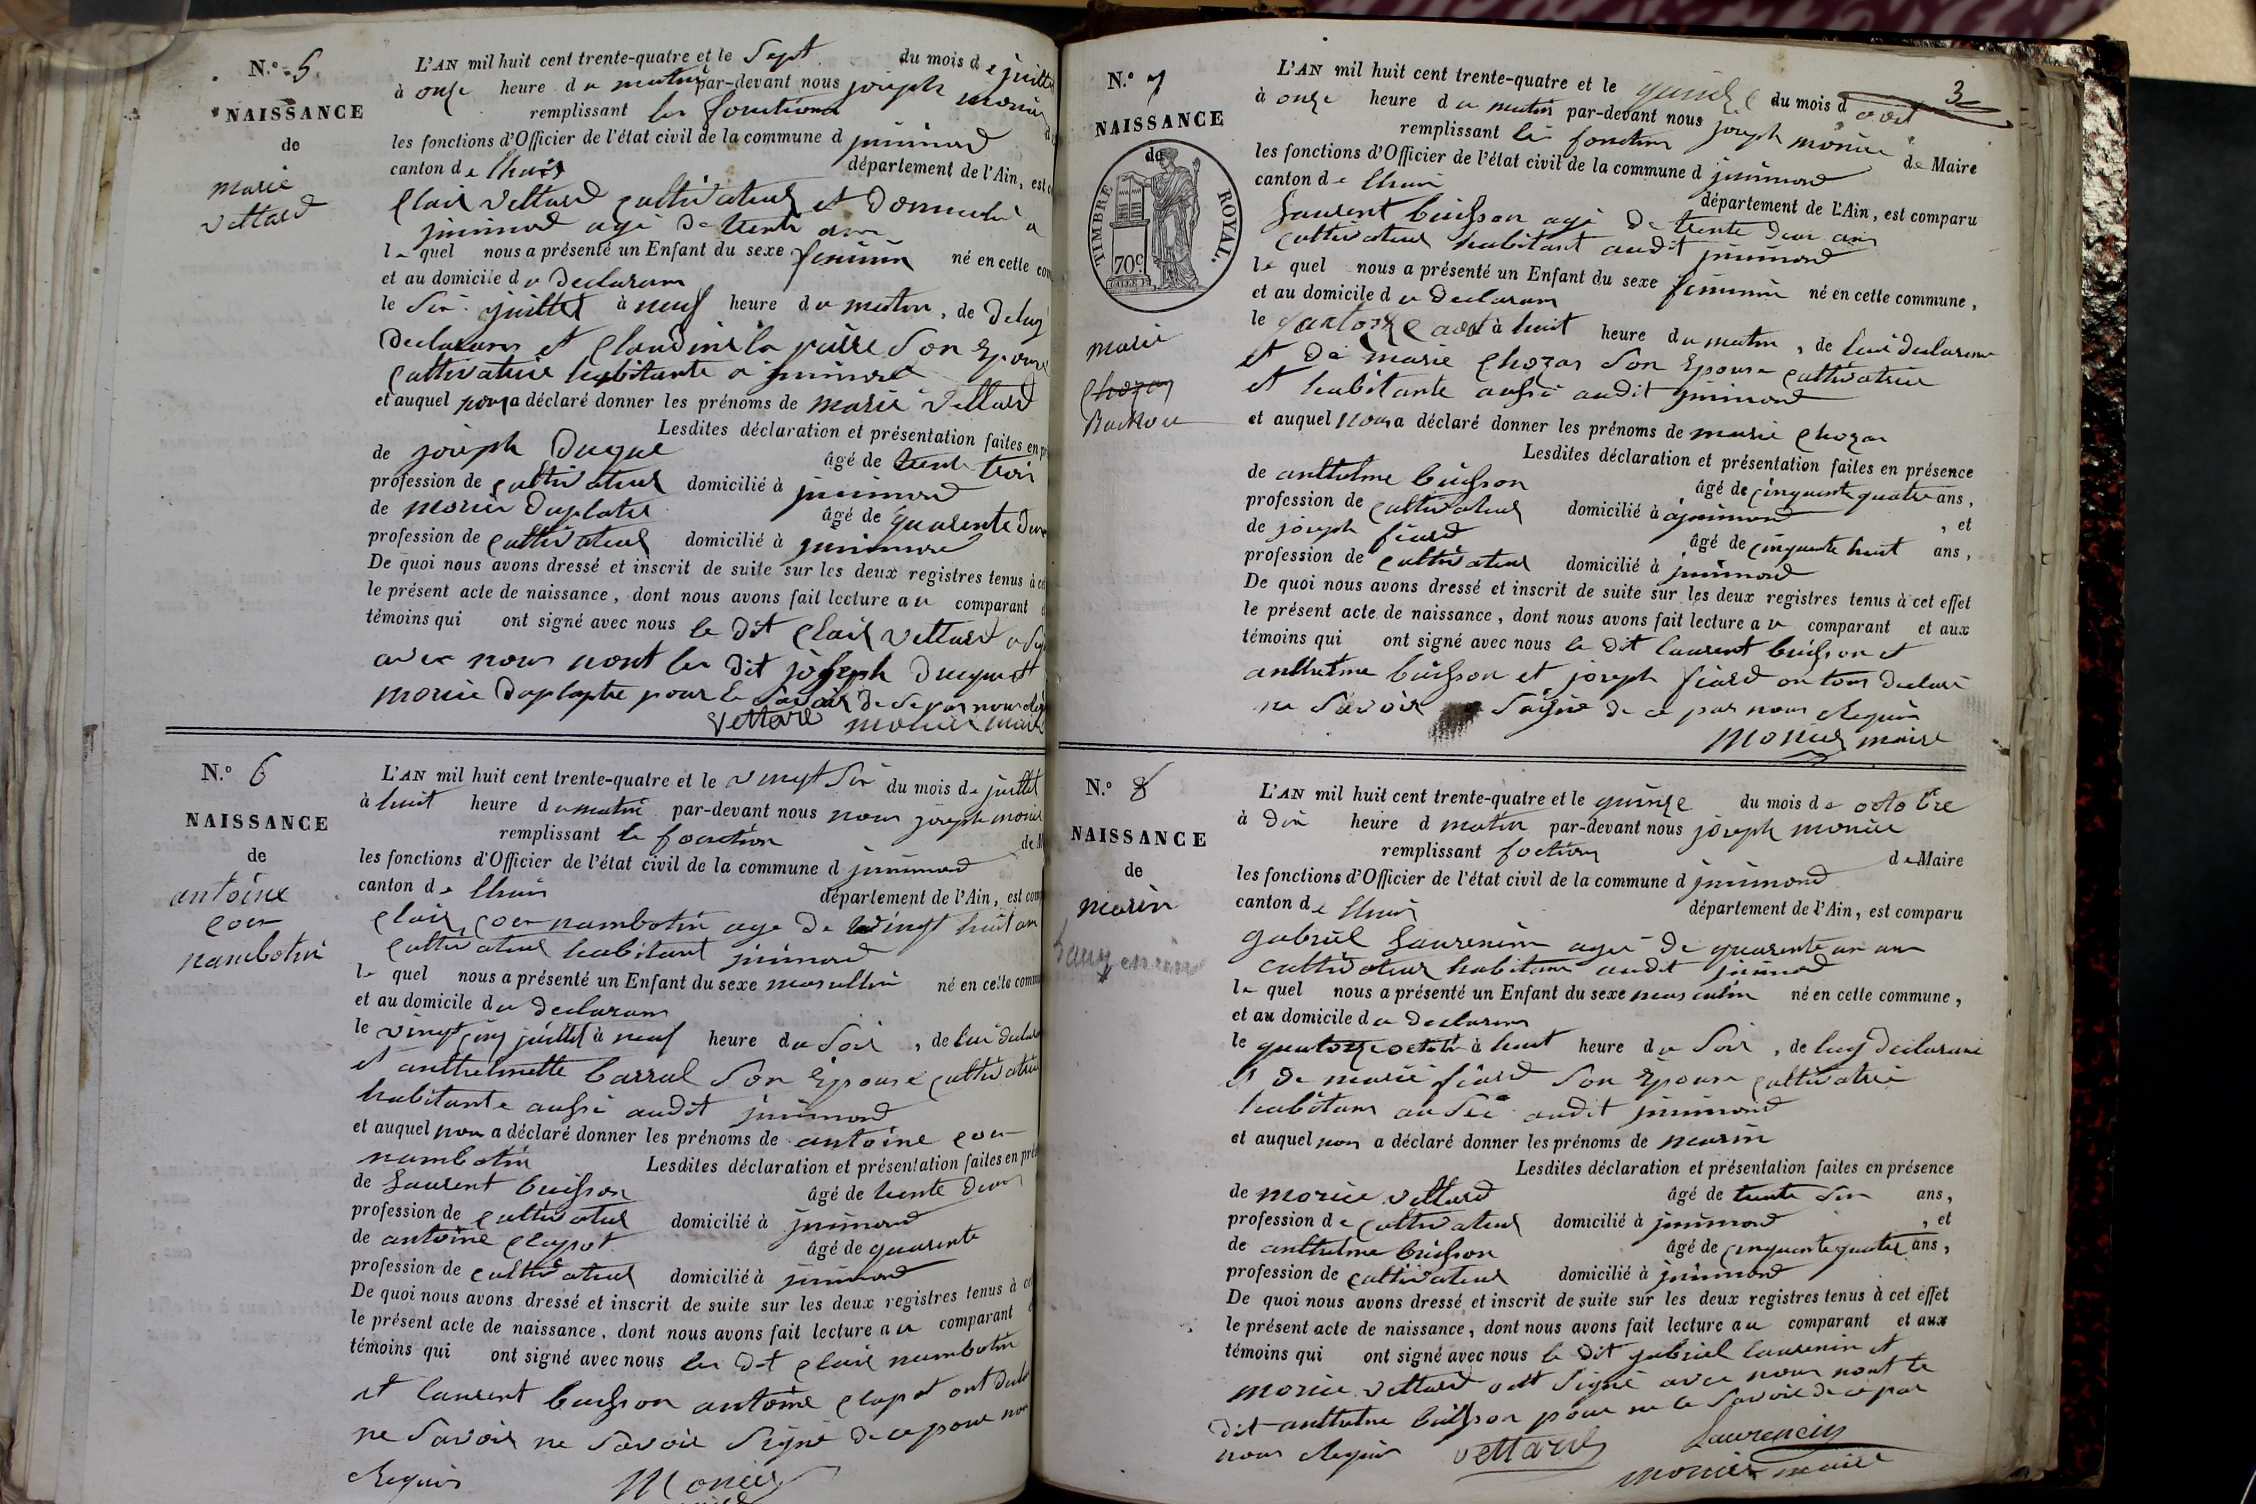 N.º 5
NAISSANCE
de
marie
vettard
L'AN mil huit cent trente-quatre et le Sept du mois de juillet
à onze heure du matin par-devant nous joseph monier
remplissant les fonctions
les fonctions d'Officier de l'état civil de la commune d jnimond
canton de lhuis département de l'Ain, est
Clair vettard cultivateur et domicilié a
jnimond agé de trente ans
le quel nous a présenté un Enfant du sexe feminin né en cette com
et au domicile du declarans
le Six juillet à neuf heure du matin, de deluy
declarans et Claudine la puisse Son Epouse
cultivatrice habitante a jnimond
et auquel nous a déclaré donner les prénoms de marie vettard
Lesdites déclaration et présentation faites en pr
de joseph Duque âgé de trente trois
profession de cultivateur domicilié à jnimond
de morice Duplatre âgé de quarente deux
profession de cultivateur domicilié à jnimond
De quoi nous avons dressé et inscrit de suite sur les deux registres tenus à cet
le présent acte de naissance, dont nous avons fait lecture au comparant
témoins qui ont signé avec nous le dit Clair vettard a
avec nous nont les dit joseph Duque et
morice duplaptre pour le savoir de
vettard monier maire
N.º 6
NAISSANCE
de
antoine
coux
nambotin
L'AN mil huit cent trente-quatre et le vingt Six du mois de juillet
à huit heure du matin par-devant nous nous joseph monier
remplissant le fonction de M
les fonctions d'Officier de l'état civil de la commune d jnimond
canton de lhuis département de l'Ain, est comp
Clair coux nambotin age de vingt huit an
cultivateur habitant jnimond
le quel nous a présenté un Enfant du sexe masculin né en cette commu
et au domicile du declarans
le vingt cinq juillet à neuf heure du Soir, de lui declar
et anthelmette barral Son Epouse cultivatrice
habitante aussi audit jnimond
et auquel nous a déclaré donner les prénoms de antoine coux
nambotin Lesdites déclaration et présentation faites en pré
de Laurent buisson âgé de trente deux
profession de cultivateur domicilié à jnimond
de antoine clapot âgé de quarente
profession de cultivateur domicilié à jnimond
De quoi nous avons dressé et inscrit de suite sur les deux registres tenus à ce
le présent acte de naissance, dont nous avons fait lecture au comparant
témoins qui ont signé avec nous les dit clair nambotin
et laurent buisson antoine clapot ont
ne Savoir ne Savoir Signé de ce pour nous
Requis Monier
3
N.º 7
NAISSANCE
de
TIMBRE ROYAL.
70c
marie
Chozas
Buisson
L'AN mil huit cent trente-quatre et le quinze du mois d out
à onze heure du matin par-devant nous joseph monier
remplissant les fonctions de Maire
les fonctions d'Officier de l'état civil de la commune d jnimond
canton de lhuis département de l'Ain, est comparu
Laurent buisson agé de trente deux ans
cultivateur habitant audit jnimond
le quel nous a présenté un Enfant du sexe feminin né en cette commune,
et au domicile du declarans
le quatorze aout à huit heure du matin, de lui declarans
et de marie Chozas Son Epouse cultivatrice
et habitante aussi audit jnimond
et auquel nous a déclaré donner les prénoms de marie Chozas
Lesdites déclaration et présentation faites en présence
de anthelme buisson âgé de cinquante quatre ans,
profession de cultivateur domicilié à jnimond, et
de joseph fiard âgé de cinquante huit ans,
profession de cultivateur domicilié à jnimond
De quoi nous avons dressé et inscrit de suite sur les deux registres tenus à cet effet
le présent acte de naissance, dont nous avons fait lecture au comparant et aux
témoins qui ont signé avec nous le dit laurent buisson et
anthelme buisson et joseph fiard on tous declaré
ne Savoir Signé de ce par nous Requis
Monier maire
N.º 8
NAISSANCE
de
morin
Laurencin
L'AN mil huit cent trente-quatre et le quinze du mois de octobre
à dix heure d matin par-devant nous joseph monier
remplissant foction de Maire
les fonctions d'Officier de l'état civil de la commune d jnimond
canton de lhuis département de l'Ain, est comparu
gabriel Laurenin agé de quarente un an
cultivateur habitans audit jnimond
le quel nous a présenté un Enfant du sexe masculin né en cette commune,
et au domicile du declarans
le quatorze octobre à huit heure du Soir, de luy declarans
et de marie fiard Son Epouse cultivatrice
habitans aussi audit jnimond
et auquel nous a déclaré donner les prénoms de morin
Lesdites déclaration et présentation faites en présence
de morice vettard âgé de trente Six ans,
profession de cultivateur domicilié à jnimond, et
de anthelme buisson âgé de cinquante quatre ans,
profession de cultivateur domicilié à jnimond
De quoi nous avons dressé et inscrit de suite sur les deux registres tenus à cet effet
le présent acte de naissance, dont nous avons fait lecture au comparant et aux
témoins qui ont signé avec nous le dit gabriel laurenin et
morice vettard ont Signé avec nous nont le
dit anthelme buisson pour ne le Savoir de ce par
nous Requis vettard Laurencin
monier maire